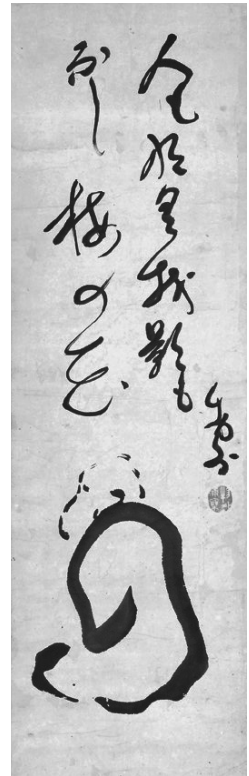 人もなく我影も
なし梅の花